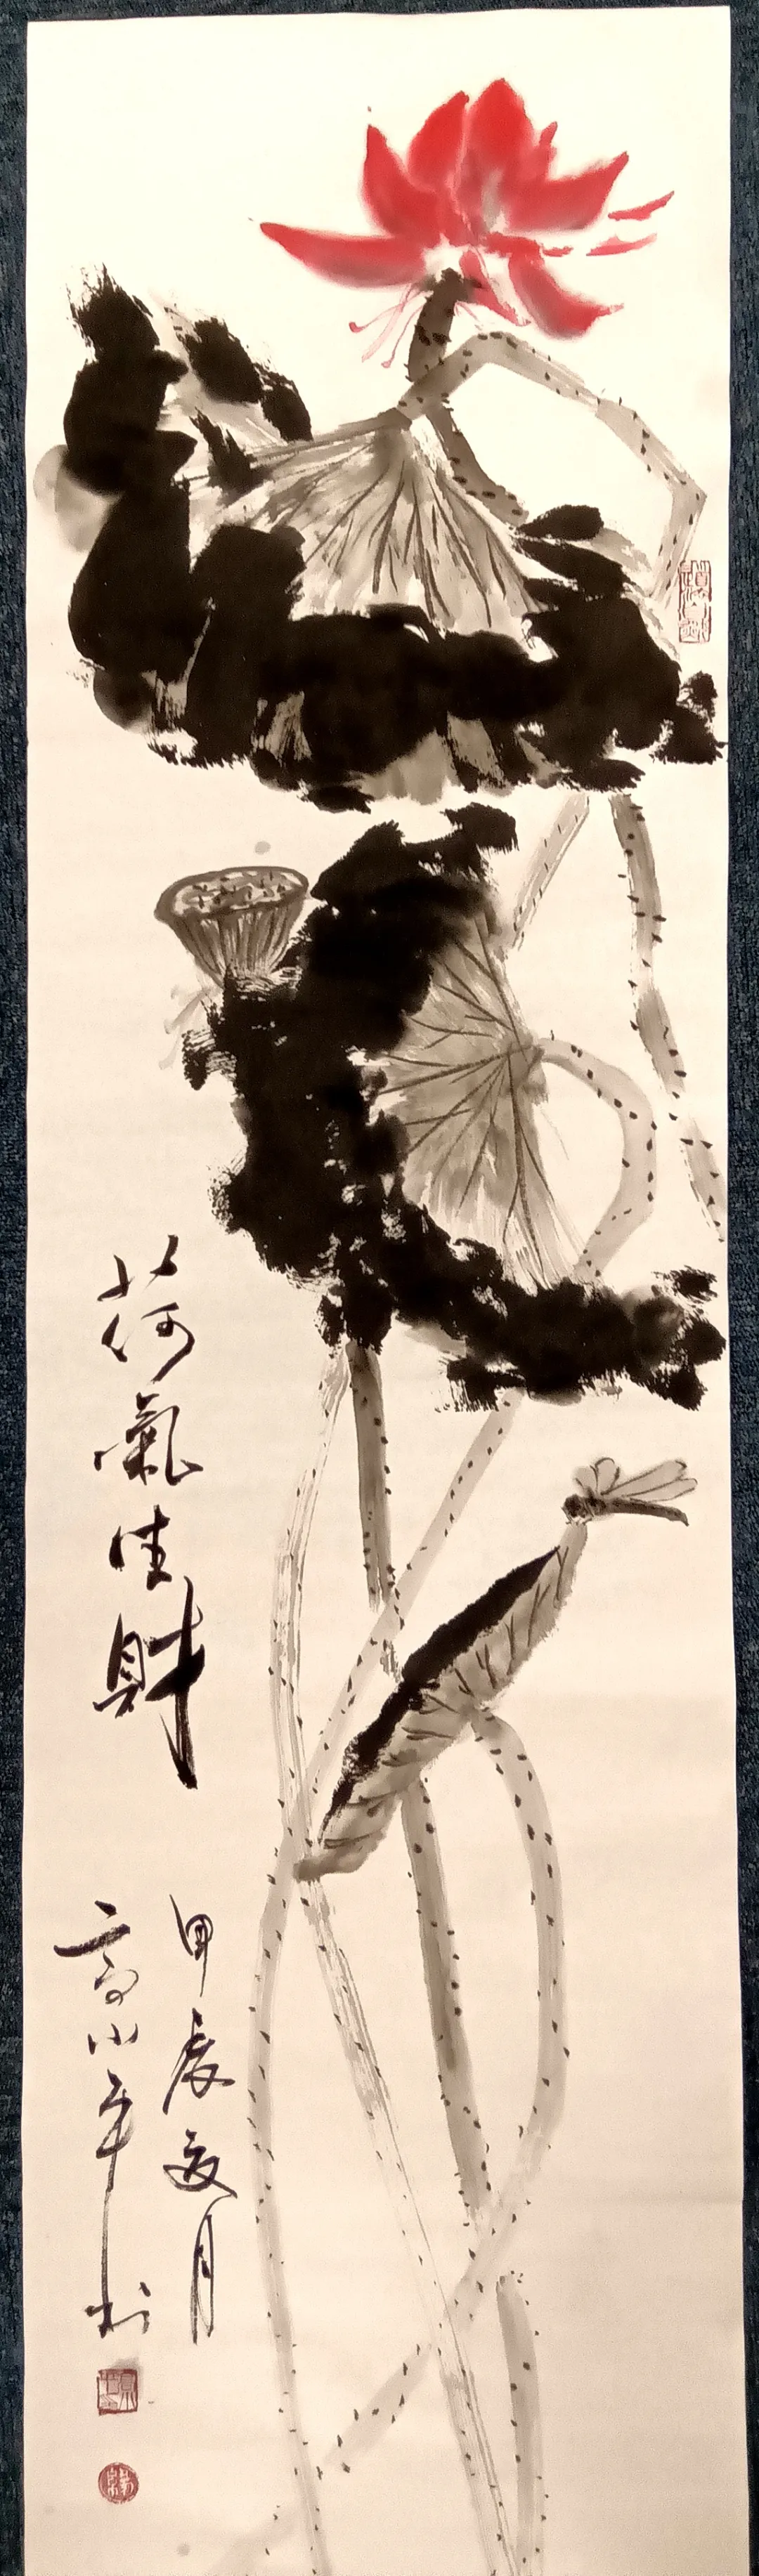 荷氣生財
甲辰夏月
高小平